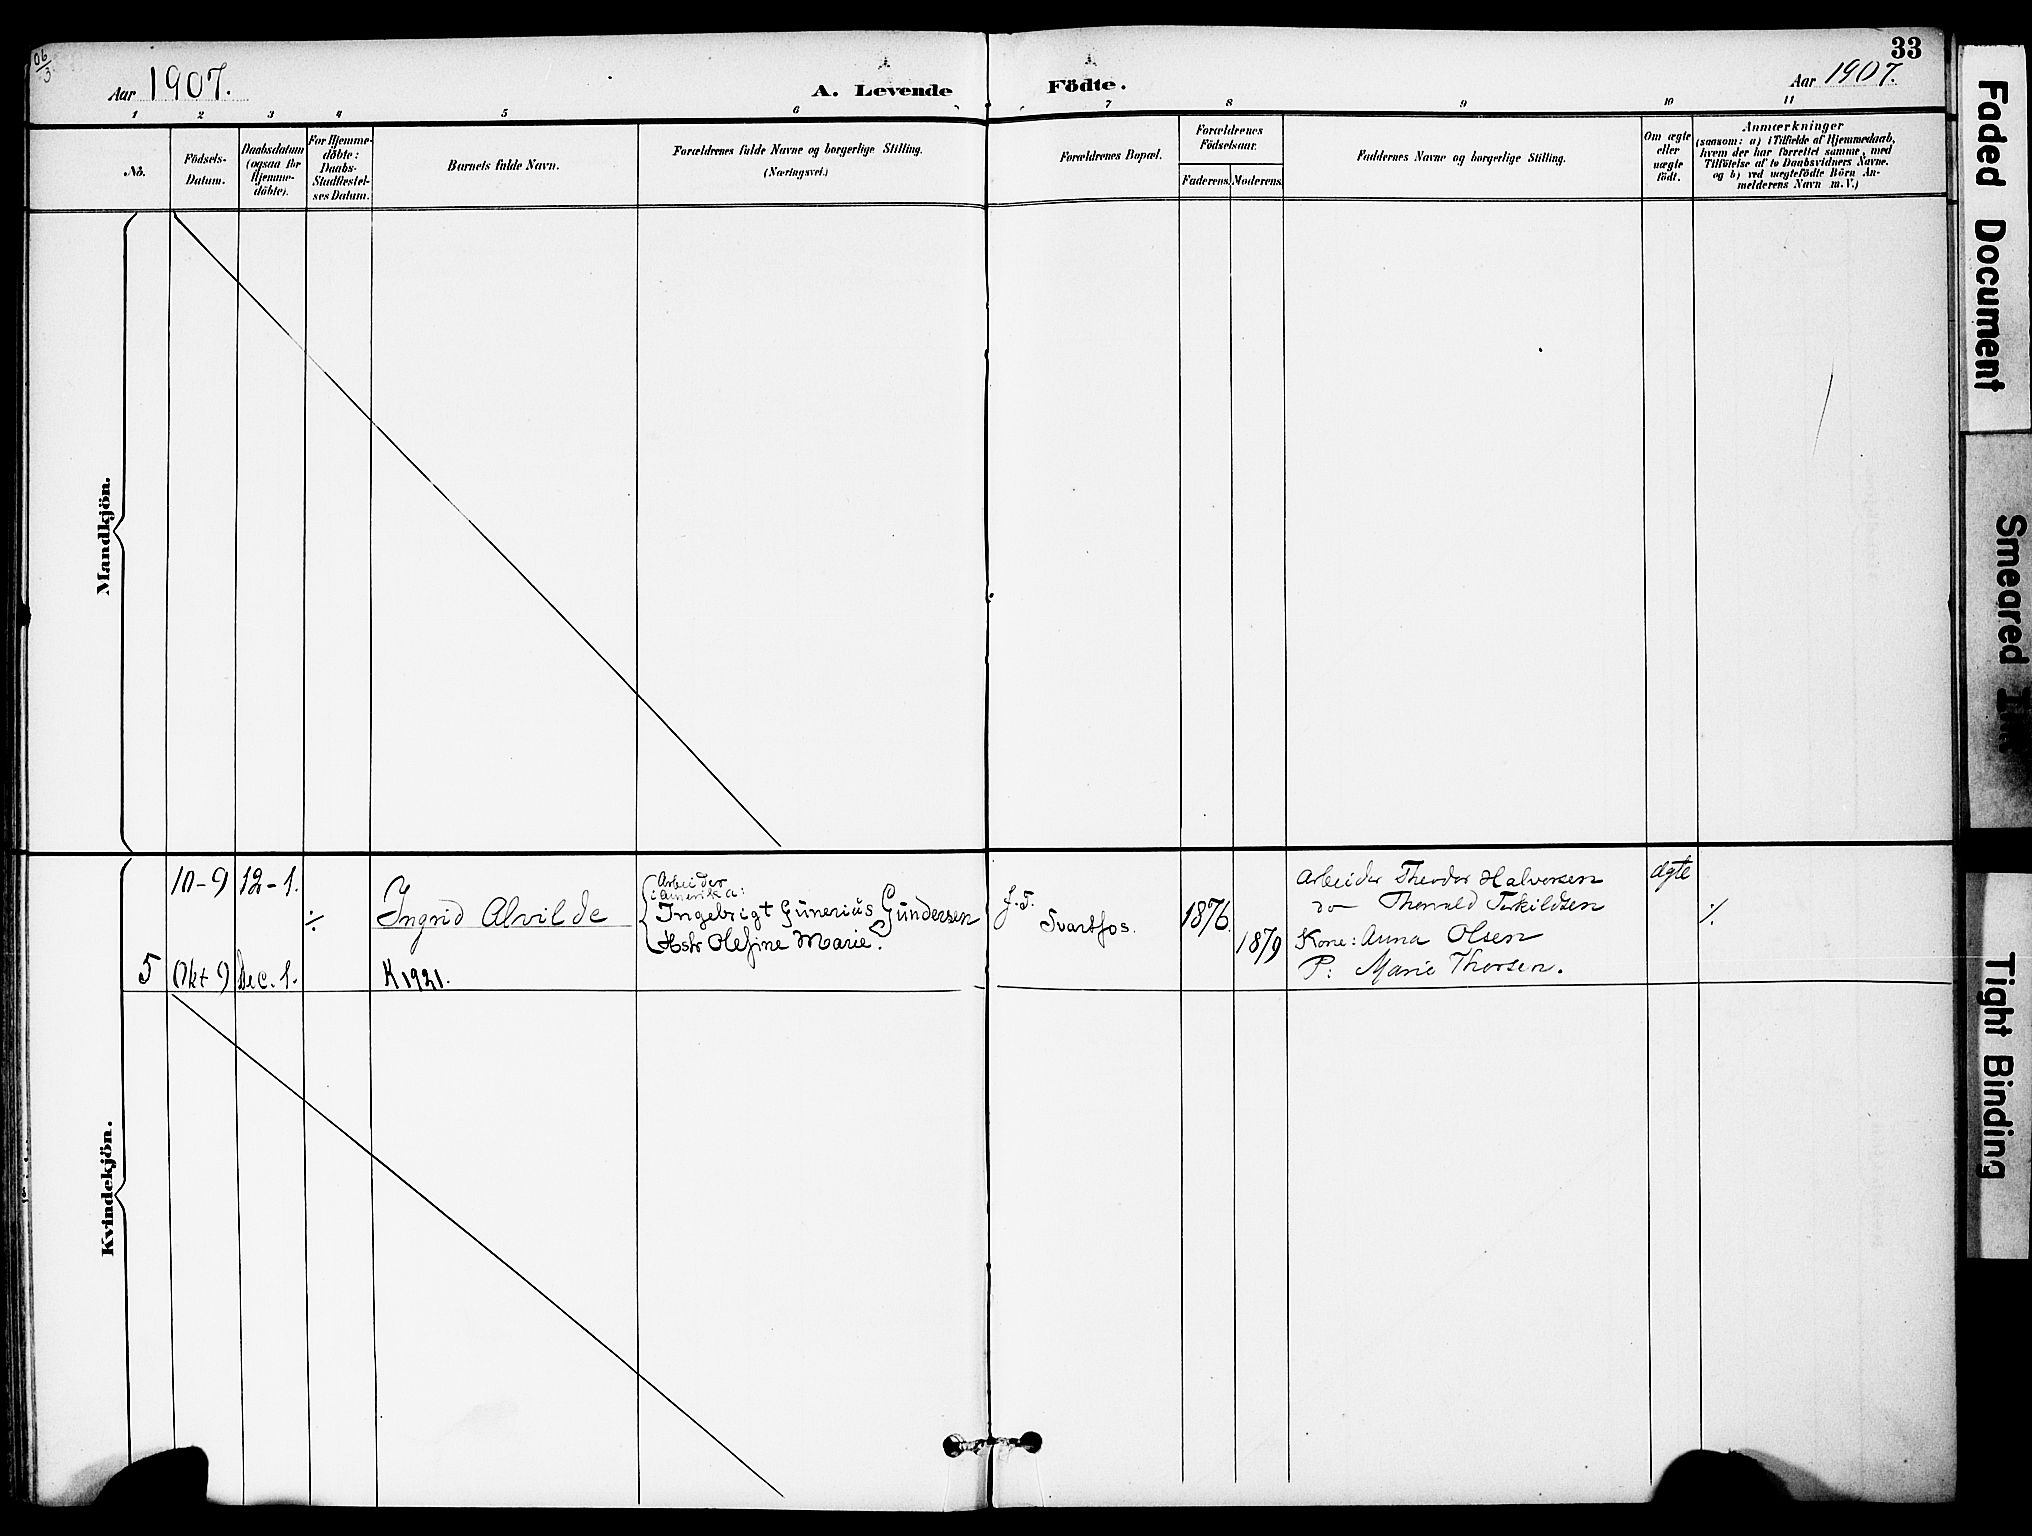 06/3
Aar 1907.
A. Levende
Födte.
33
Aar 1907.
1 2 3 4 5 6 7 8 9 10 11
No.
Födsels-
Datum.
Daabsdatum
(ogsaa for
Hjemme-
döbte).
For Hjemme-
döbte:
Daabs-
Stadfæstel-
ses Datum.
Barnets fulde Navn.
Forældrenes fulde Navne og borgerlige Stilling.
(Næringsvei.)
Forældrenes Bopæl.
Forældrenes
Födselsaar.
Faderens.
Moderens.
Faddernes Navne og borgerlige Stilling.
Om ægte
eller
uægte
födt.
Anmærkninger
(saasom: a) i Tilfælde af Hjemmedaab,
hvem der har forrettet samme, med
Tilföielse af to Daabsvidners Navne.
og b) ved uægtefödte Börn An-
melderens Navn m. V.)
Mandkjön.
10-9
12-1.
÷
Ingrid Alvilde
Arbeider
i Amerika:
Ingebrigt Gunerius Gundersen
Hstr Olefine Marie
J. F.
Svartfos.
1876.
1879
Arbeider Theodor Halvorsen
do Thorvald Terkildsen
Kone: Anna Olsen
P: Marie Thorsen.
ægte
⁒
5
Okt 9
Dec. 1.
K 1921.
Kvindekjön.
Faded Document
Smeared Ink
Tight Binding